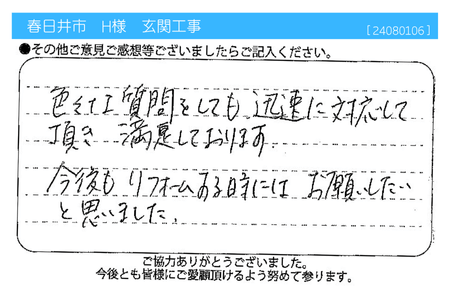 春日井市　H様　玄関工事
[24080106]
●その他ご意見ご感想等ございましたらご記入ください。
色々な質問をしても 迅速に対応して
頂き 満足しております.
今後も リフォームある時には お願いしたい
と思いました.
ご協力ありがとうございました。
今後とも皆様にご愛顧頂けるよう努めて参ります。